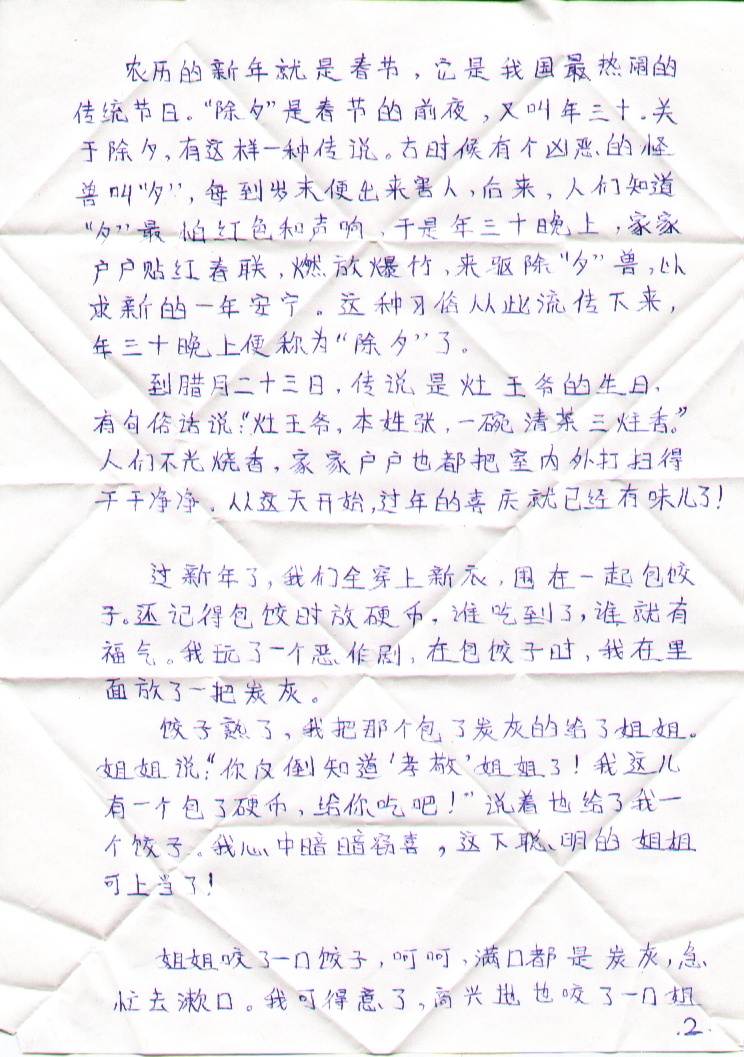 农历的新年就是春节，它是我国最热闹的
传统节日。“除夕”是春节的前夜，又叫年三十。关
于除夕，有这样一种传说。古时候有个凶恶的怪
兽叫“夕”，每到岁末便出来害人，后来，人们知道
“夕”最怕红色和声响，于是年三十晚上，家家
户户贴红春联，燃放爆竹，来驱除“夕”兽，以
求新的一年安宁。这种习俗从此流传下来，
年三十晚上便称为“除夕”了。
到腊月二十三日，传说是灶王爷的生日，
有句俗话说：“灶王爷，本姓张，一碗清茶三炷香。”
人们不光烧香，家家户户也都把室内外打扫得
干干净净。从这天开始，过年的喜庆就已经有味儿了！
过新年了，我们全穿上新衣，围在一起包饺
子。还记得包饺时放硬币，谁吃到了，谁就有
福气。我玩了一个恶作剧，在包饺子时，我在里
面放了一把炭灰。
饺子熟了，我把那个包了炭灰的给了姐姐。
姐姐说：“你反倒知道‘孝敬’姐姐了！我这儿
有一个包了硬币，给你吃吧！”说着也给了我一
个饺子。我心中暗暗窃喜，这下聪明的姐姐
可上当了！
姐姐咬了一口饺子，呵呵，满口都是炭灰，急
忙去漱口。我可得意了，高兴地也咬了一口姐
.2.